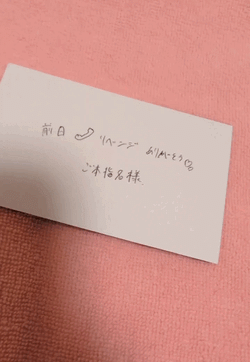 前日 リベンジ ありがとう
ご本指名様